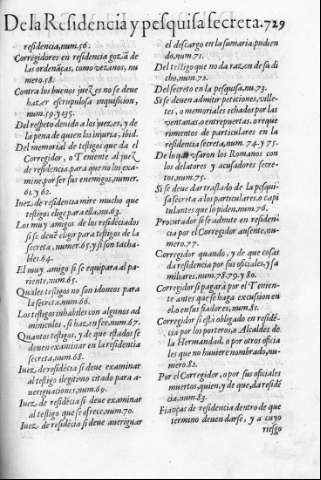 De la Residencia y pesquisa secreta. 729
residencia, num. 56.
Corregidores en residencia gozã de
las ordenãças, como vezanos, nu
mero 58.
Contra los buenos juezes no se deue
hazer escrupulosa inquisicion,
num. 59. y 135.
Del respeto deuido a los juezes, y de
la pena de quien los injuria, ibid.
Del memorial de testigos que da el
Corregidor, o Teniente al juez
de residencia, para que no los exa-
mine, por ser sus enemigos, numer.
61. y 62.
Iuez de residencia mire mucho que
testigos elige para ella, nu. 63.
Los muy amigos de los residẽciados
si se deuẽ elegir para testigos de la
secreta, numer. 65. y si son tacha-
bles. 64.
El muy amigo si se equipara al pa-
riente, num. 65.
Quales testigos no son idoneos para
la secreta, num. 66.
Los testigos inhabiles con algunos ad
miniculos, si hazẽ fee, num. 67.
Quantos testigos, y de que estados se
deuen examinar en la residencia
secreta, num. 68.
Iuez de residẽcia si deue examinar
al testigo ilegitimo citado para a-
ueriguaciones, num. 69.
Iuez de residẽcia si deue examinar
al testigo que se ofrece, num. 70.
Iuez de residẽcia si deue aueriguar
el descargo en la sumaria pudien
do, num. 71.
Del testigo que no da razon de su di
cho, num. 72.
Del secreto en la pesquisa, nu. 73.
Si se deuen admitir peticiones, ville-
tes, o memoriales echados por las
ventanas, o entrepuertas, o reque
rimientos de particulares en la
residencia secreta, num. 74. y 75.
De lo q̃ vsaron los Romanos con
los delatores y acusadores secre-
tos, num. 75.
Si se deue dar traslado de la pesqui-
sa secreta a los particulares, o capi
tulantes que lo piden, num. 76.
Procurador si se admite en residen-
cia por el Corregidor ausente, nu-
mero. 77.
Corregidor quando, y de que cosas
da residencia por sus oficiales, y fa
miliares, num. 78. 79. y 80.
Corregidor si pagarà por el Tenien-
te antes que se haga excusion en
el o en sus fiadores, num. 81.
Corregidor si està obligado en residẽ-
cia por los porteros, o Alcaldes de
la Hermandad, o por otros oficia
les que no huuiere nombrado, nu-
mero. 82.
Por el Corregidor, o por sus oficiales
muertos, quien, y de que, da residẽ
cia, num. 83.
Fianças de residencia dentro de que
termino deuen darse, y a cuyo
riesgo